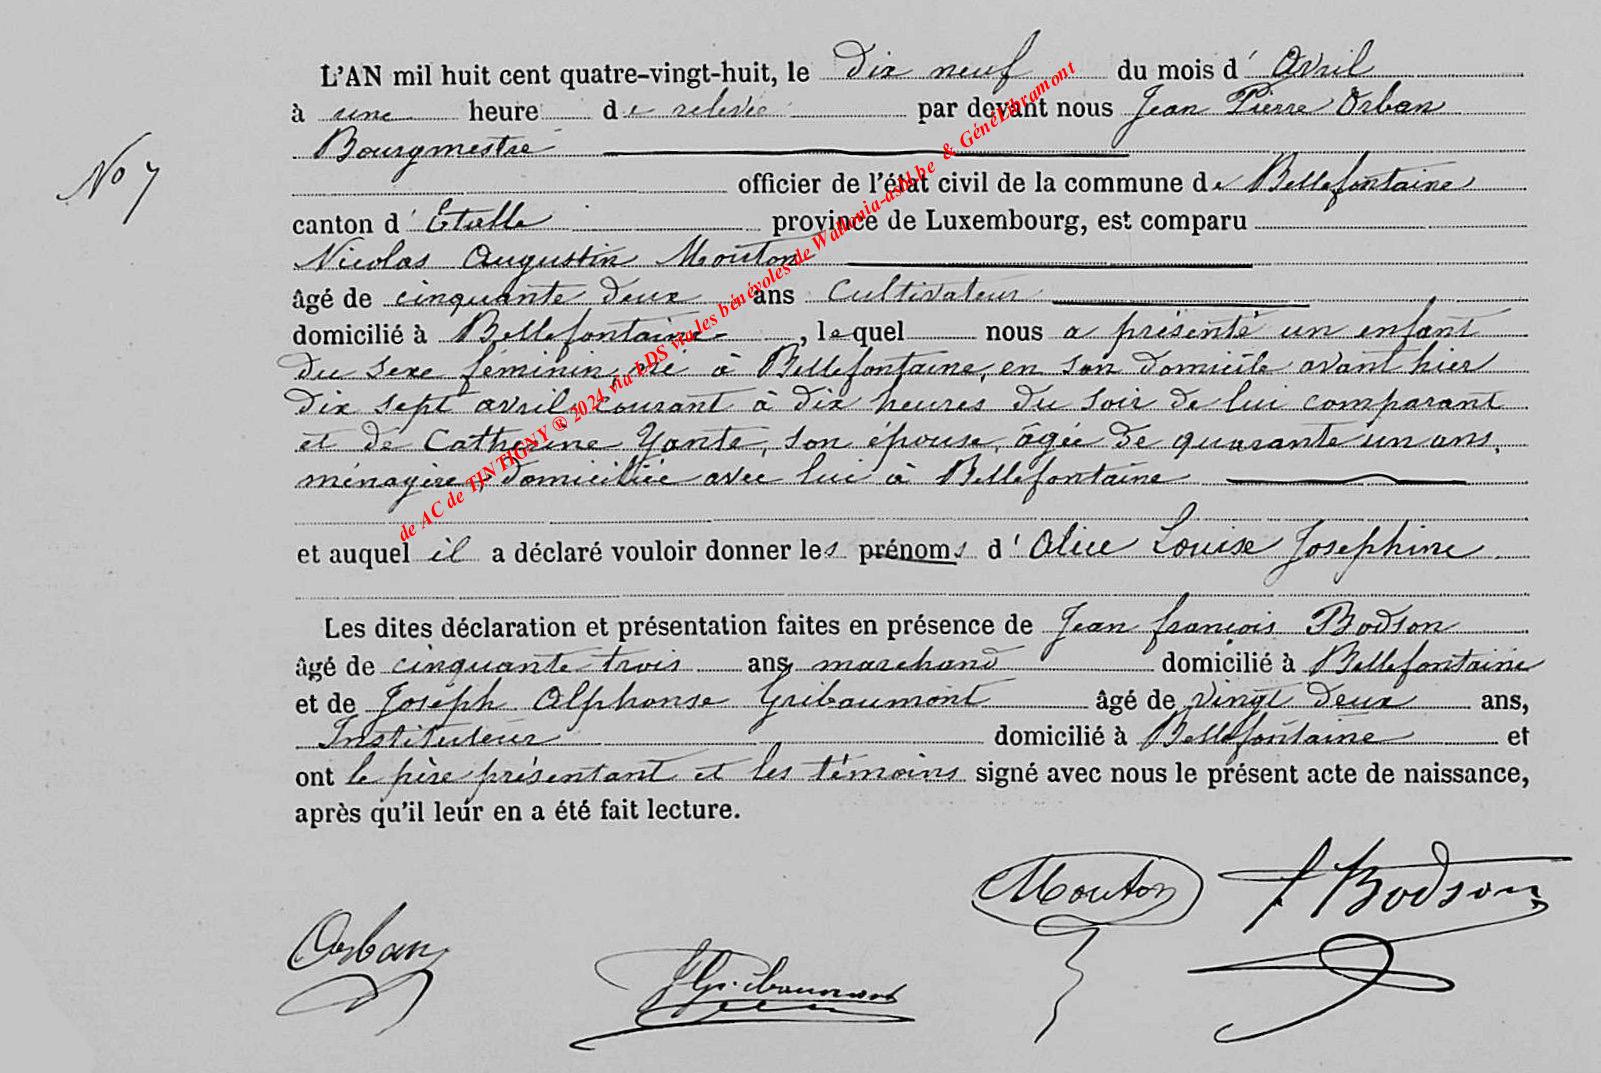 L'AN mil huit cent quatre-vingt-huit, le dix neuf du mois d' Avril
à une heure de relevée par devant nous Jean Pierre Orban
Bourgmestre
No 7
officier de l'état civil de la commune de Bellefontaine
canton d' Etalle province de Luxembourg, est comparu
Nicolas Augustin Mouton
âgé de cinquante deux ans Cultivateur
domicilié à Bellefontaine, lequel nous a présenté un enfant
du sexe féminin, né à Bellefontaine, en son domicile avant hier
dix sept avril courant à dix heures du soir de lui comparant
et de Catherine Yante, son épouse, âgée de quarante un ans,
ménagère, domiciliée avec lui à Bellefontaine
et auquel il a déclaré vouloir donner les prénoms d' Alice Louise Joséphine.
Les dites déclaration et présentation faites en présence de Jean françois Bodson
âgé de cinquante trois ans, marchand domicilié à Bellefontaine
et de Joseph Alphonse Gribaumont âgé de vingt deux ans,
Instituteur domicilié à Bellefontaine et
ont le père présentant et les témoins signé avec nous le présent acte de naissance,
après qu'il leur en a été fait lecture.
Mouton f Bodson
Orban JGribaumont
de AC de TINTIGNY ® 2024 via LDS via les bénévoles de Wallonia-asbl.be & GénéLibramont